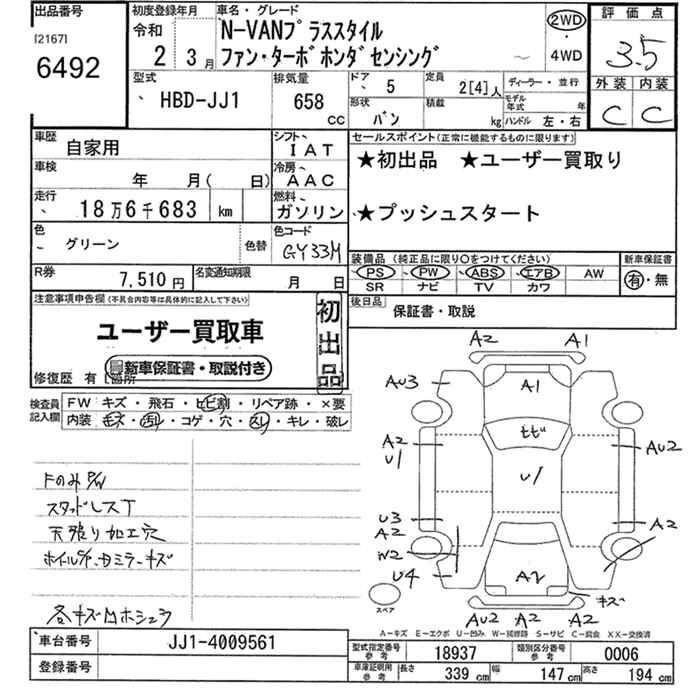 出品番号
[2167]
6492
初度登録年月
令和
2 3月
車名・グレード
N-VANプラススタイル
ファン・ターボホンダセンシング
2WD
4WD
評価点
3.5
外装 内装
C C
型式
HBD-JJ1
排気量
658
cc
ドア
5
定員
2[4]人
形状
バン
積載
kg
ディーラー・並行
モデル年式 年
ハンドル 左・右
車歴
自家用
シフト
IAT
車検
年 月( 日)
冷房
AAC
走行
18万6千683 km
燃料
ガソリン
色
グリーン
色替
色コード
GY33M
R券
7,510円
名変通知期限
月 日
セールスポイント(正常に機能するものに限ります)
★初出品 ★ユーザー買取り
★プッシュスタート
装備品(純正品に限り○をつけてください)
PS PW ABS エアB AW
SR ナビ TV カワ
新車保証書
有・無
後日品
保証書・取説
注意事項申告欄(不具合内容等は具体的に記入して下さい)
ユーザー買取車
新車保証書・取説付き
初出品
修復歴 有 [箇所
検査員記入欄
FW キズ・飛石・ヒビ割・リペア跡・×要
内装 キズ・汚れ・コゲ・穴・スレ・キレ・破レ
Fのみ P/W
スタッドレスT
天張り加工穴
ホイルC/P、カミラーキズ
各キズ凹ホシュウ
A2 A1
AU3
A1
A2
U1
ヒビ
AU2
U1
U3
A2
W2
A2
U4
A2
キズ
スペア
AU2 A2 A2
A-キズ E-エクボ U-凹み W-補修跡 S-サビ C-腐食 XX-交換済
車台番号
JJ1-4009561
登録番号
型式指定番号
参考
18937
類別区分番号
参考
0006
車庫証明用
参考
長さ
339 cm
幅
147 cm
高さ
194 cm